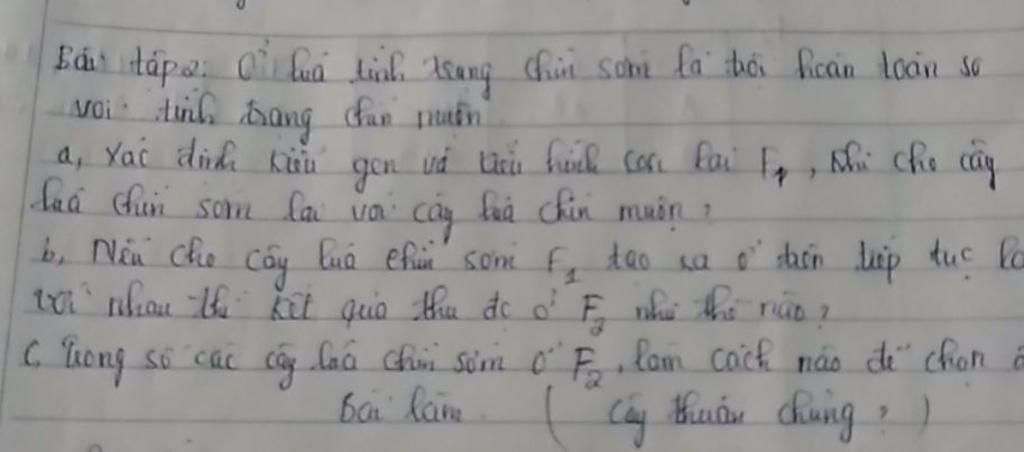 Bài tập 2: Ở lúa tính trạng chín sớm là trội hoàn toàn so
với tính trạng chín muộn
a, Xác định kiểu gen và kiểu hình con lai F1, khi cho cây
lúa chín sớm lai với cây lúa chín muộn?
b, Nếu cho cây lúa chín sớm F1 tạo ra ở trên tiếp tục la
với nhau thì kết quả thu đc ở F2 như thế nào?
C, Trong số các cây lúa chín sớm ở F2, làm cách nào để chọn đ
Bài làm (cây thuần chủng?)